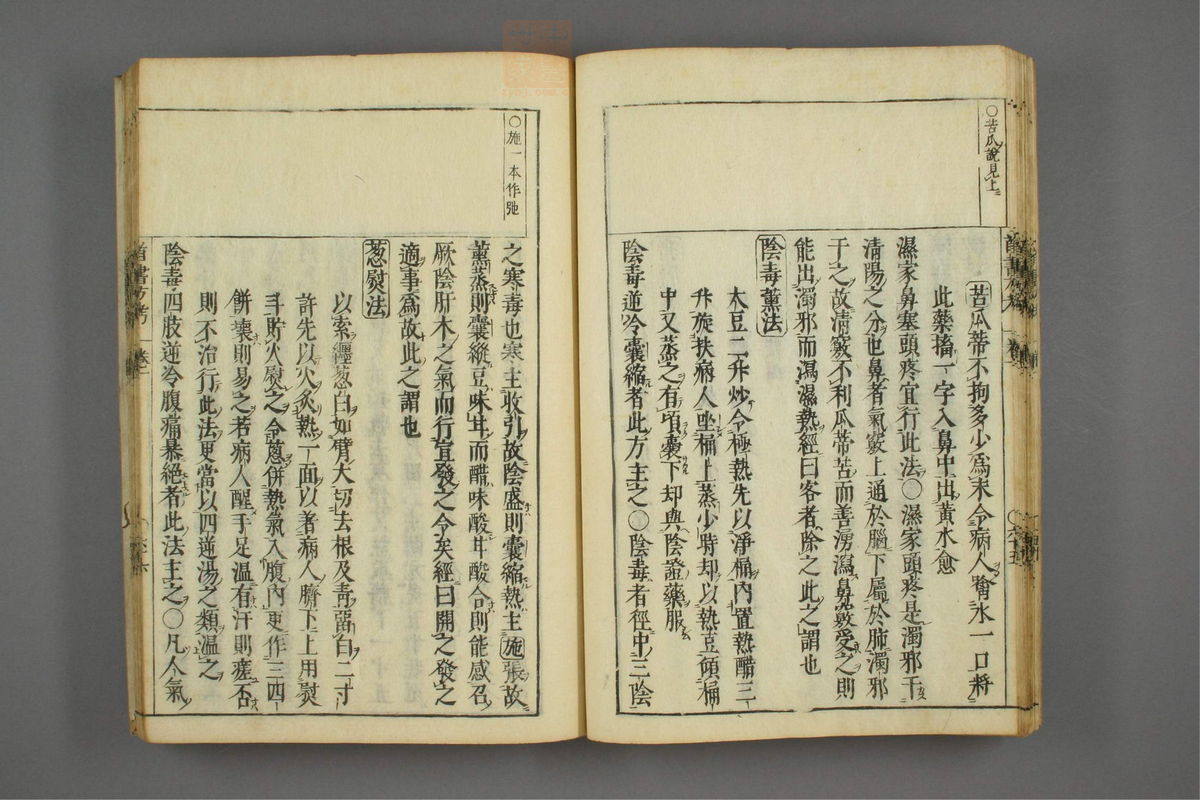 ○苦瓜說見上
苦瓜蒂不拘多少爲末令病人噙水一口將
此藥搐一字入鼻中出黃水愈
濕家鼻塞頭疼宜行此法○濕家頭疼是濁邪干
清陽之分也鼻者氣竅上通於腦下屬於肺濁邪
干之故淸竅不利瓜蒂苦而善湧瀉鼻竅受之則
能出濁邪而瀉濕熱經曰客者除之此之謂也
陰毒薰法
大豆二升炒令極熱先以淨桶內置熱醋三
升旋扶病人坐桶上蒸少時却以熱豆傾桶
中又蒸之有頃囊下却與陰證藥服
陰毒逆冷囊縮者此方主之○陰毒者徑中三陰
首書方考 卷一 六十五
○施一本作弛
之寒毒也寒主收引故陰盛則囊縮熱主施張故
薰蒸則囊縱豆味甘而醋味酸甘酸合則能感召
厥陰肝木之氣而行宣發之令矣經曰開之發之
適事爲故此之謂也
葱熨法
以索纏葱白如臂大切去根及靑留白二寸
許先以火炙熱一面以著病人臍下上用熨
斗貯火熨之令蔥餅熱氣入腹內更作三四
餅壞則易之若病人醒手足溫有汗則瘥否
則不治行此法更當以四逆湯之類溫之
陰毒四肢逆冷腹痛暴絕者此法主之○凡人氣
首書方考 卷一 六十六